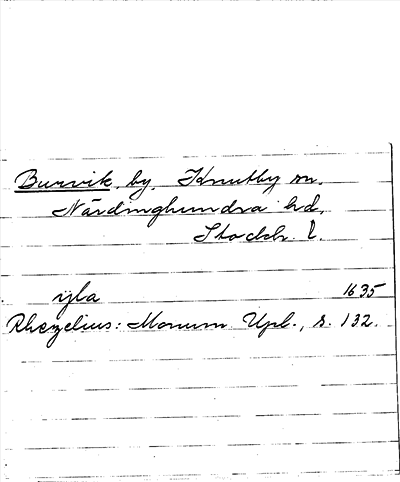 Burvik, by, Knutby sn.
Närdinghundra hd,
Stockh. l.
ijla 1635
Rhezelius: Monum Upl., s. 132.